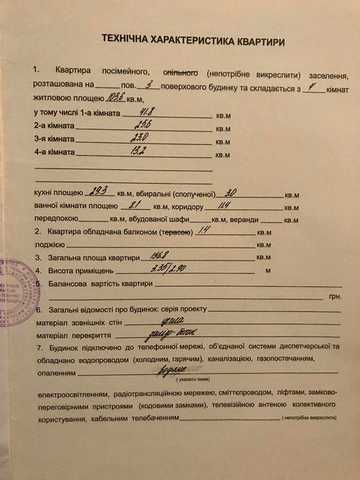 ТЕХНІЧНА ХАРАКТЕРИСТИКА КВАРТИРИ
1. Квартира посімейного, спільного (непотрібне викреслити) заселення,
розташована на пов. 3 поверхового будинку та складається з 4 кімнат
житловою площею 103,6 кв.м,
у тому числі 1-а кімната 41.8 кв.м
2-а кімната кв.м
3-я кімната 23.0 кв.м
4-а кімната кв.м
кухні площею 29.3 кв.м, вбиральні (сполученої) 3.0 кв.м
ванної кімнати площею 8.1 кв.м, коридору кв.м
передпокою кв.м, вбудованої шафи кв.м, веранди кв.м
2. Квартира обладнана балконом (терасою) 1.4 кв.м
лоджією кв.м
3. Загальна площа квартири кв.м
4. Висота приміщень м
5. Балансова вартість квартири
грн.
6. Загальні відомості про будинок: серія проекту
матеріал зовнішніх стін цегла
матеріал перекриття
7. Будинок підключено до телефонної мережі, об'єднаної системи диспетчерської та
обладнано водопроводом (холодним, гарячим), каналізацією, газопостачанням,
опаленням
( указати яким)
електроосвітленням, радіотрансляційною мережею, сміттєпроводом, ліфтами, замково-
переговірними пристроями (кодовими замками), телевізійною антеною колективного
користування, кабельним телебаченням ( непотрібне викреслити)